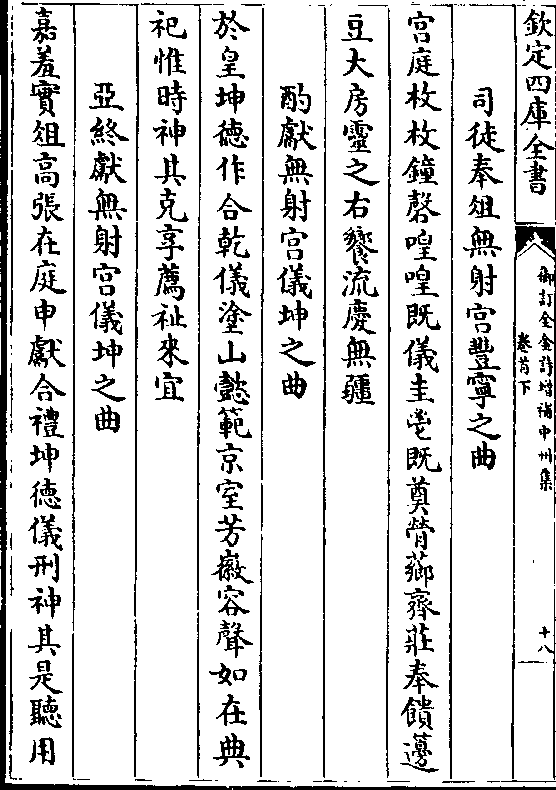 欽定四庫全書
御訂全金詩增補中州集
卷首下
十八
司徒奉俎無射宮豐寧之曲
宮庭枚枚鐘磬喤喤既儀圭鬯既奠膋薌齊莊奉饋籩
豆大房靈之右饗流慶無疆
酌獻無射宮儀坤之曲
於皇坤德作合乾儀塗山懿範京室芳徽容聲如在典
祀惟時神其克享薦祉來宜
亞終獻無射宮儀坤之曲
嘉羞實俎高張在庭申獻合禮坤德儀刑神其是聽用